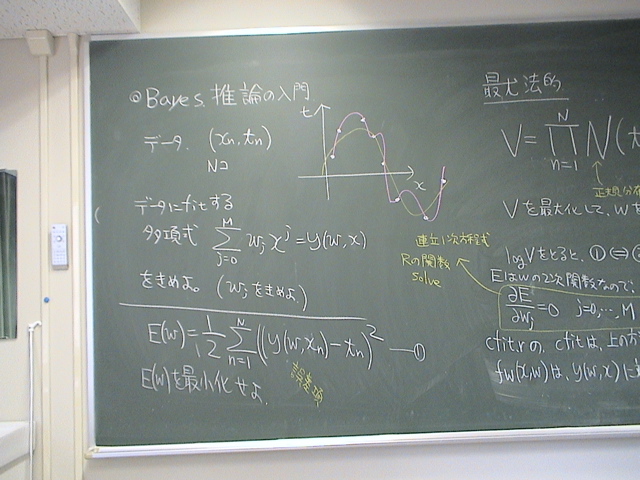 ◎Bayes 推論の入門
データ (xn, tn)
Nコ
t
x
データにfitする
多項式 Σ_{j=0}^{M} wj x^j = y(w,x)
をきめよ。 (wjをきめよ)
E(w) = 1/2 Σ_{n=1}^{N} (y(w,xn) - tn)^2 —①
E(w)を最小化せよ。
誤差
連立1次方程式
Rの関数
solve
最尤法的
V = Π_{n=1}^{N} N(t
正規分布
Vを最大化して、wを
log Vをとると、①⇔
Eはwの2次関数なので、
∂E/∂wj = 0 j=0,…,M
cfit.rの、cfitは、上の方
fw(x,w)は、y(w,x)に